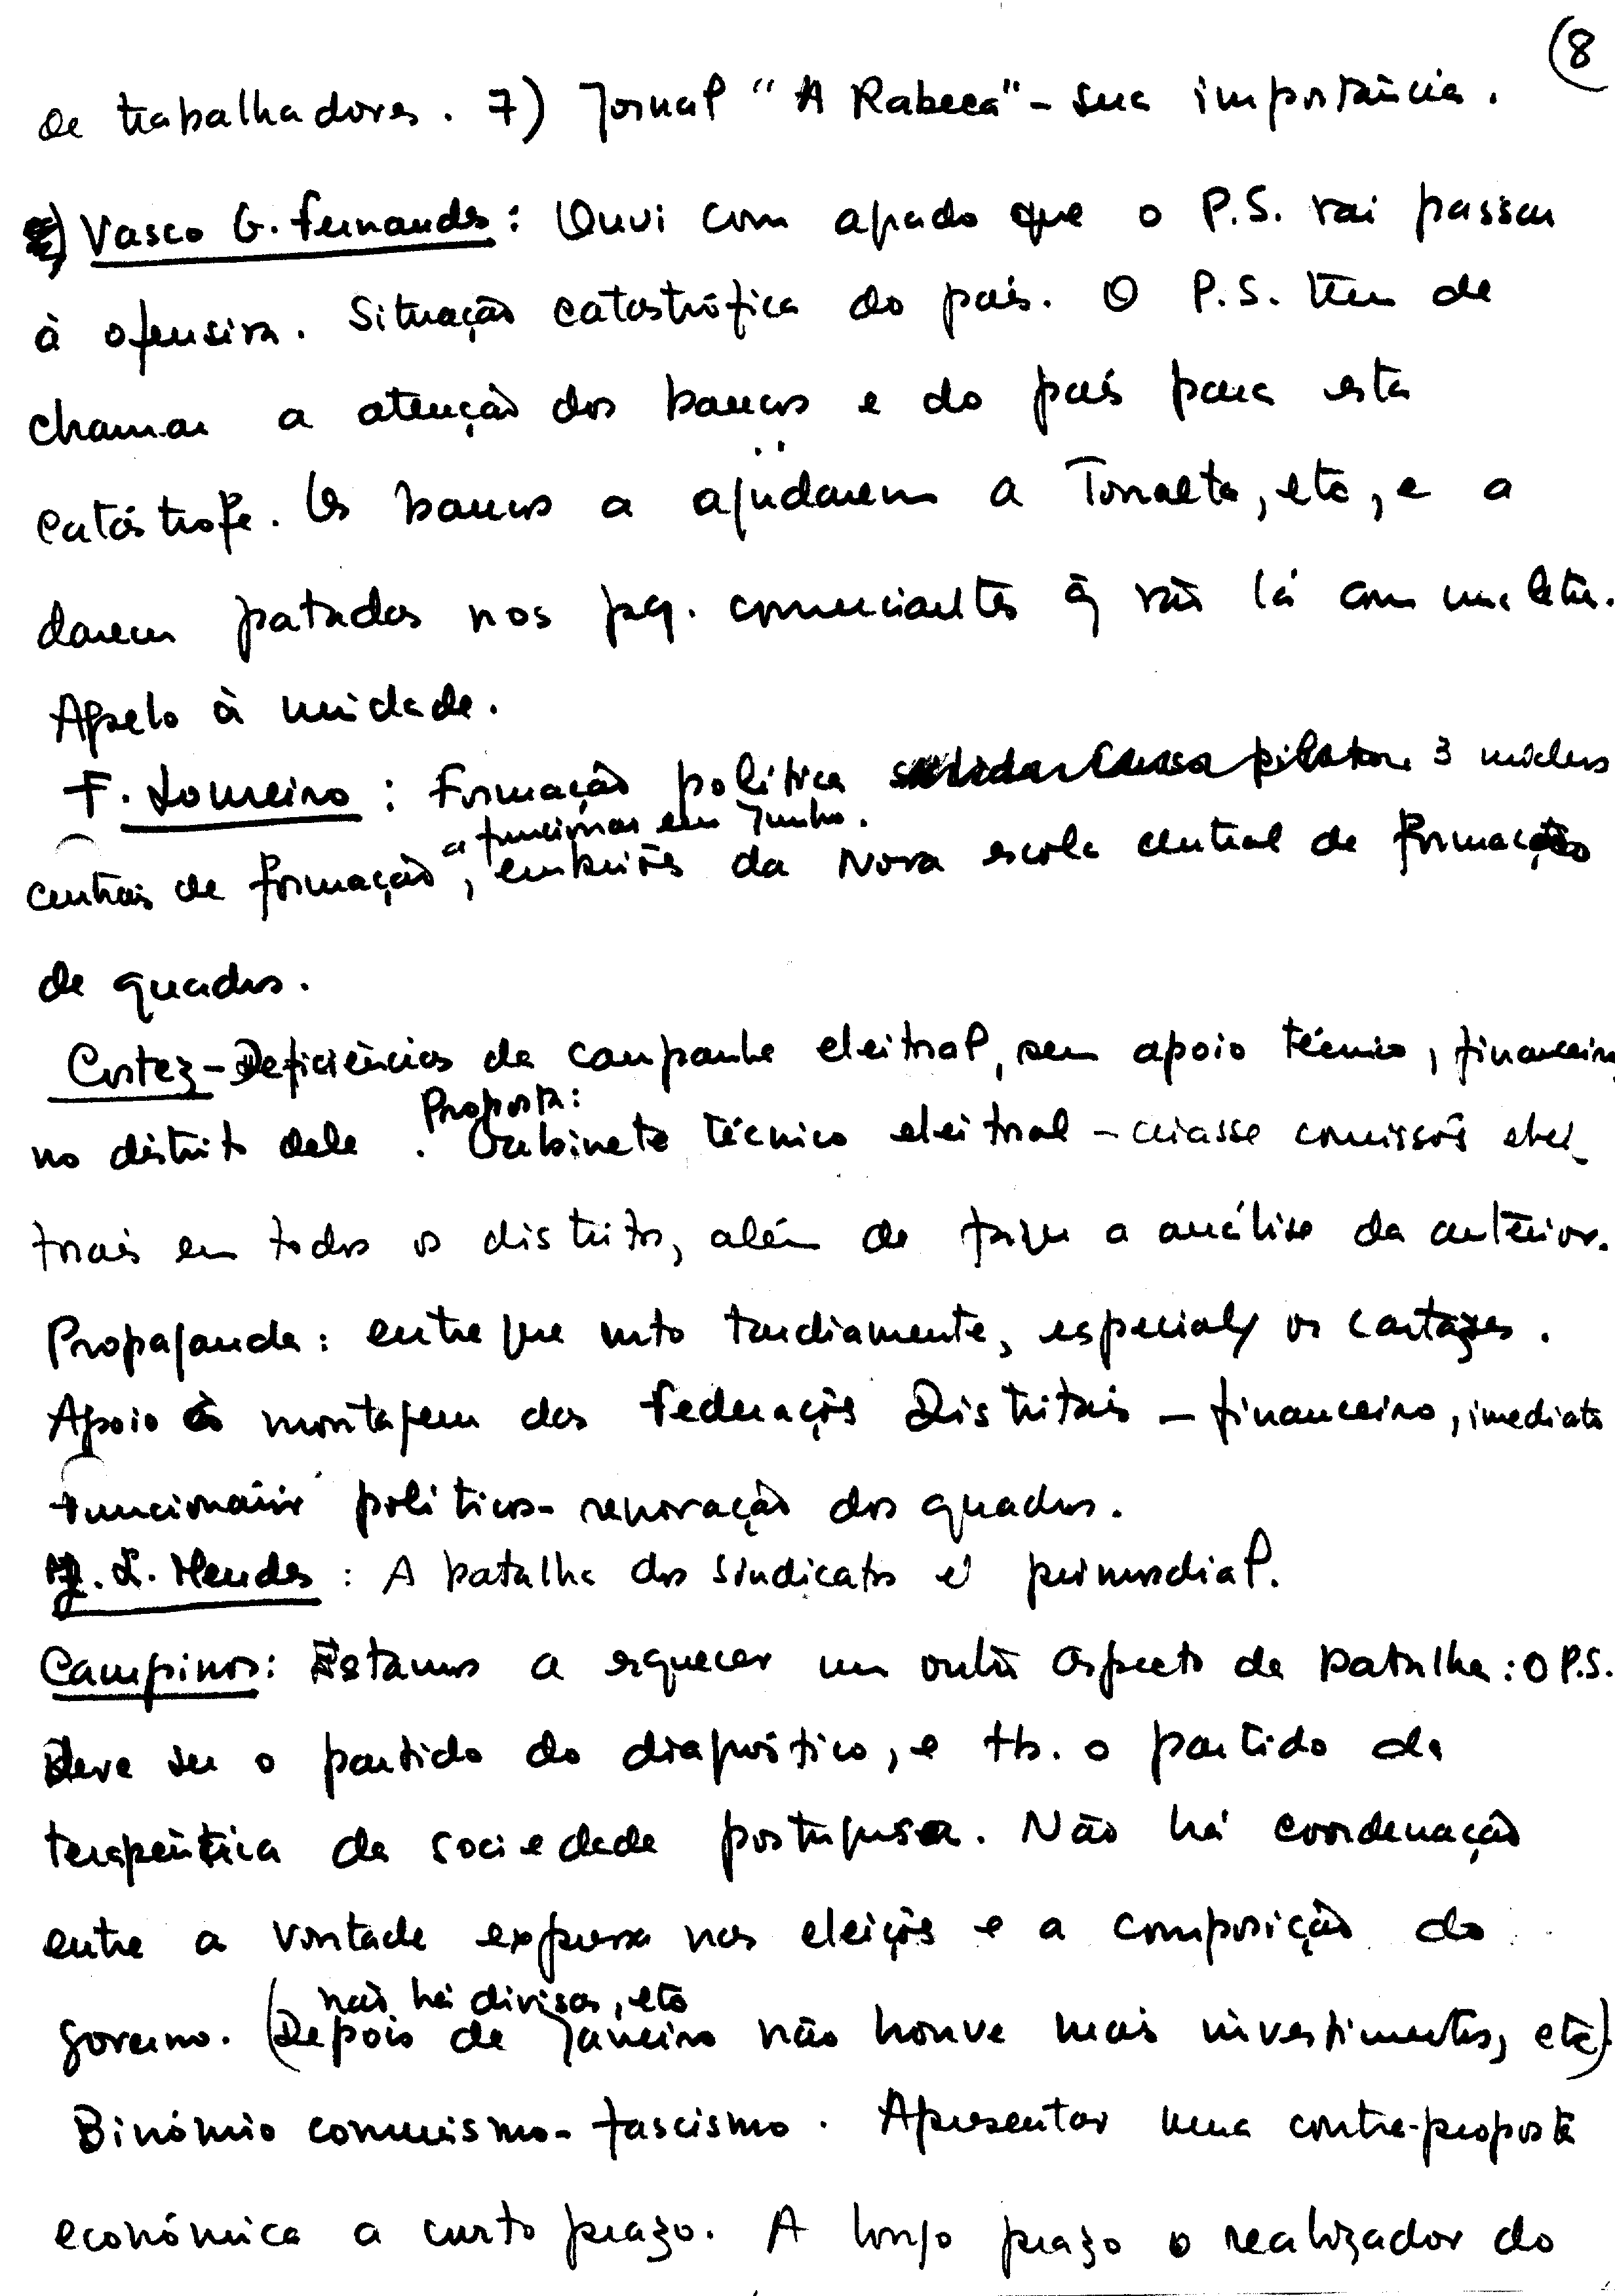 (8
de trabalhadores. 7) Jornal "A Rabeca" - sua importância.
Vasco G. Fernandes: Ouvi com agrado que o P.S. vai passar
à ofensiva. Situação catastrófica do país. O P.S. tem de
chamar a atenção dos bancos e do país para esta
catástrofe. Os bancos a ajudarem a Torralta, etc, e a
darem patadas nos pq. comerciantes q̃ vão lá com uma letra.
Apelo à unidade.
F. Loureiro: Formação política 3 núcleos
a funcionar em Junho.
centrais de formação, embriões da Nova escola central de formação
de quadros.
Cortez - Deficiências da campanha eleitoral, sem apoio técnico, financeiro,
Proposta:
no distrito dele. Gabinete técnico eleitoral - criasse comissões elei_
torais em todos os distritos, além de fazer a análise da anterior.
Propaganda: entregue mto tardiamente, especial/ os cartazes.
Apoio à montagem das Federações Distritais - financeiro, imediato
Funcionários políticos - renovação dos quadros.
L. Mendes: A batalha dos sindicatos é primordial.
Campinos: Estamos a esquecer um outro aspecto da batalha: O P.S.
Deve ser o partido do diagnóstico, e tb. o partido da
terapêutica da sociedade portuguesa. Não há coordenação
entre a vontade expressa nas eleições e a composição do
não há divisas, etc
governo. (Depois de Janeiro não houve mais investimentos, etc).
Binómio comunismo-fascismo. Apresentar uma contra-proposta
económica a curto prazo. A longo prazo o realizador do